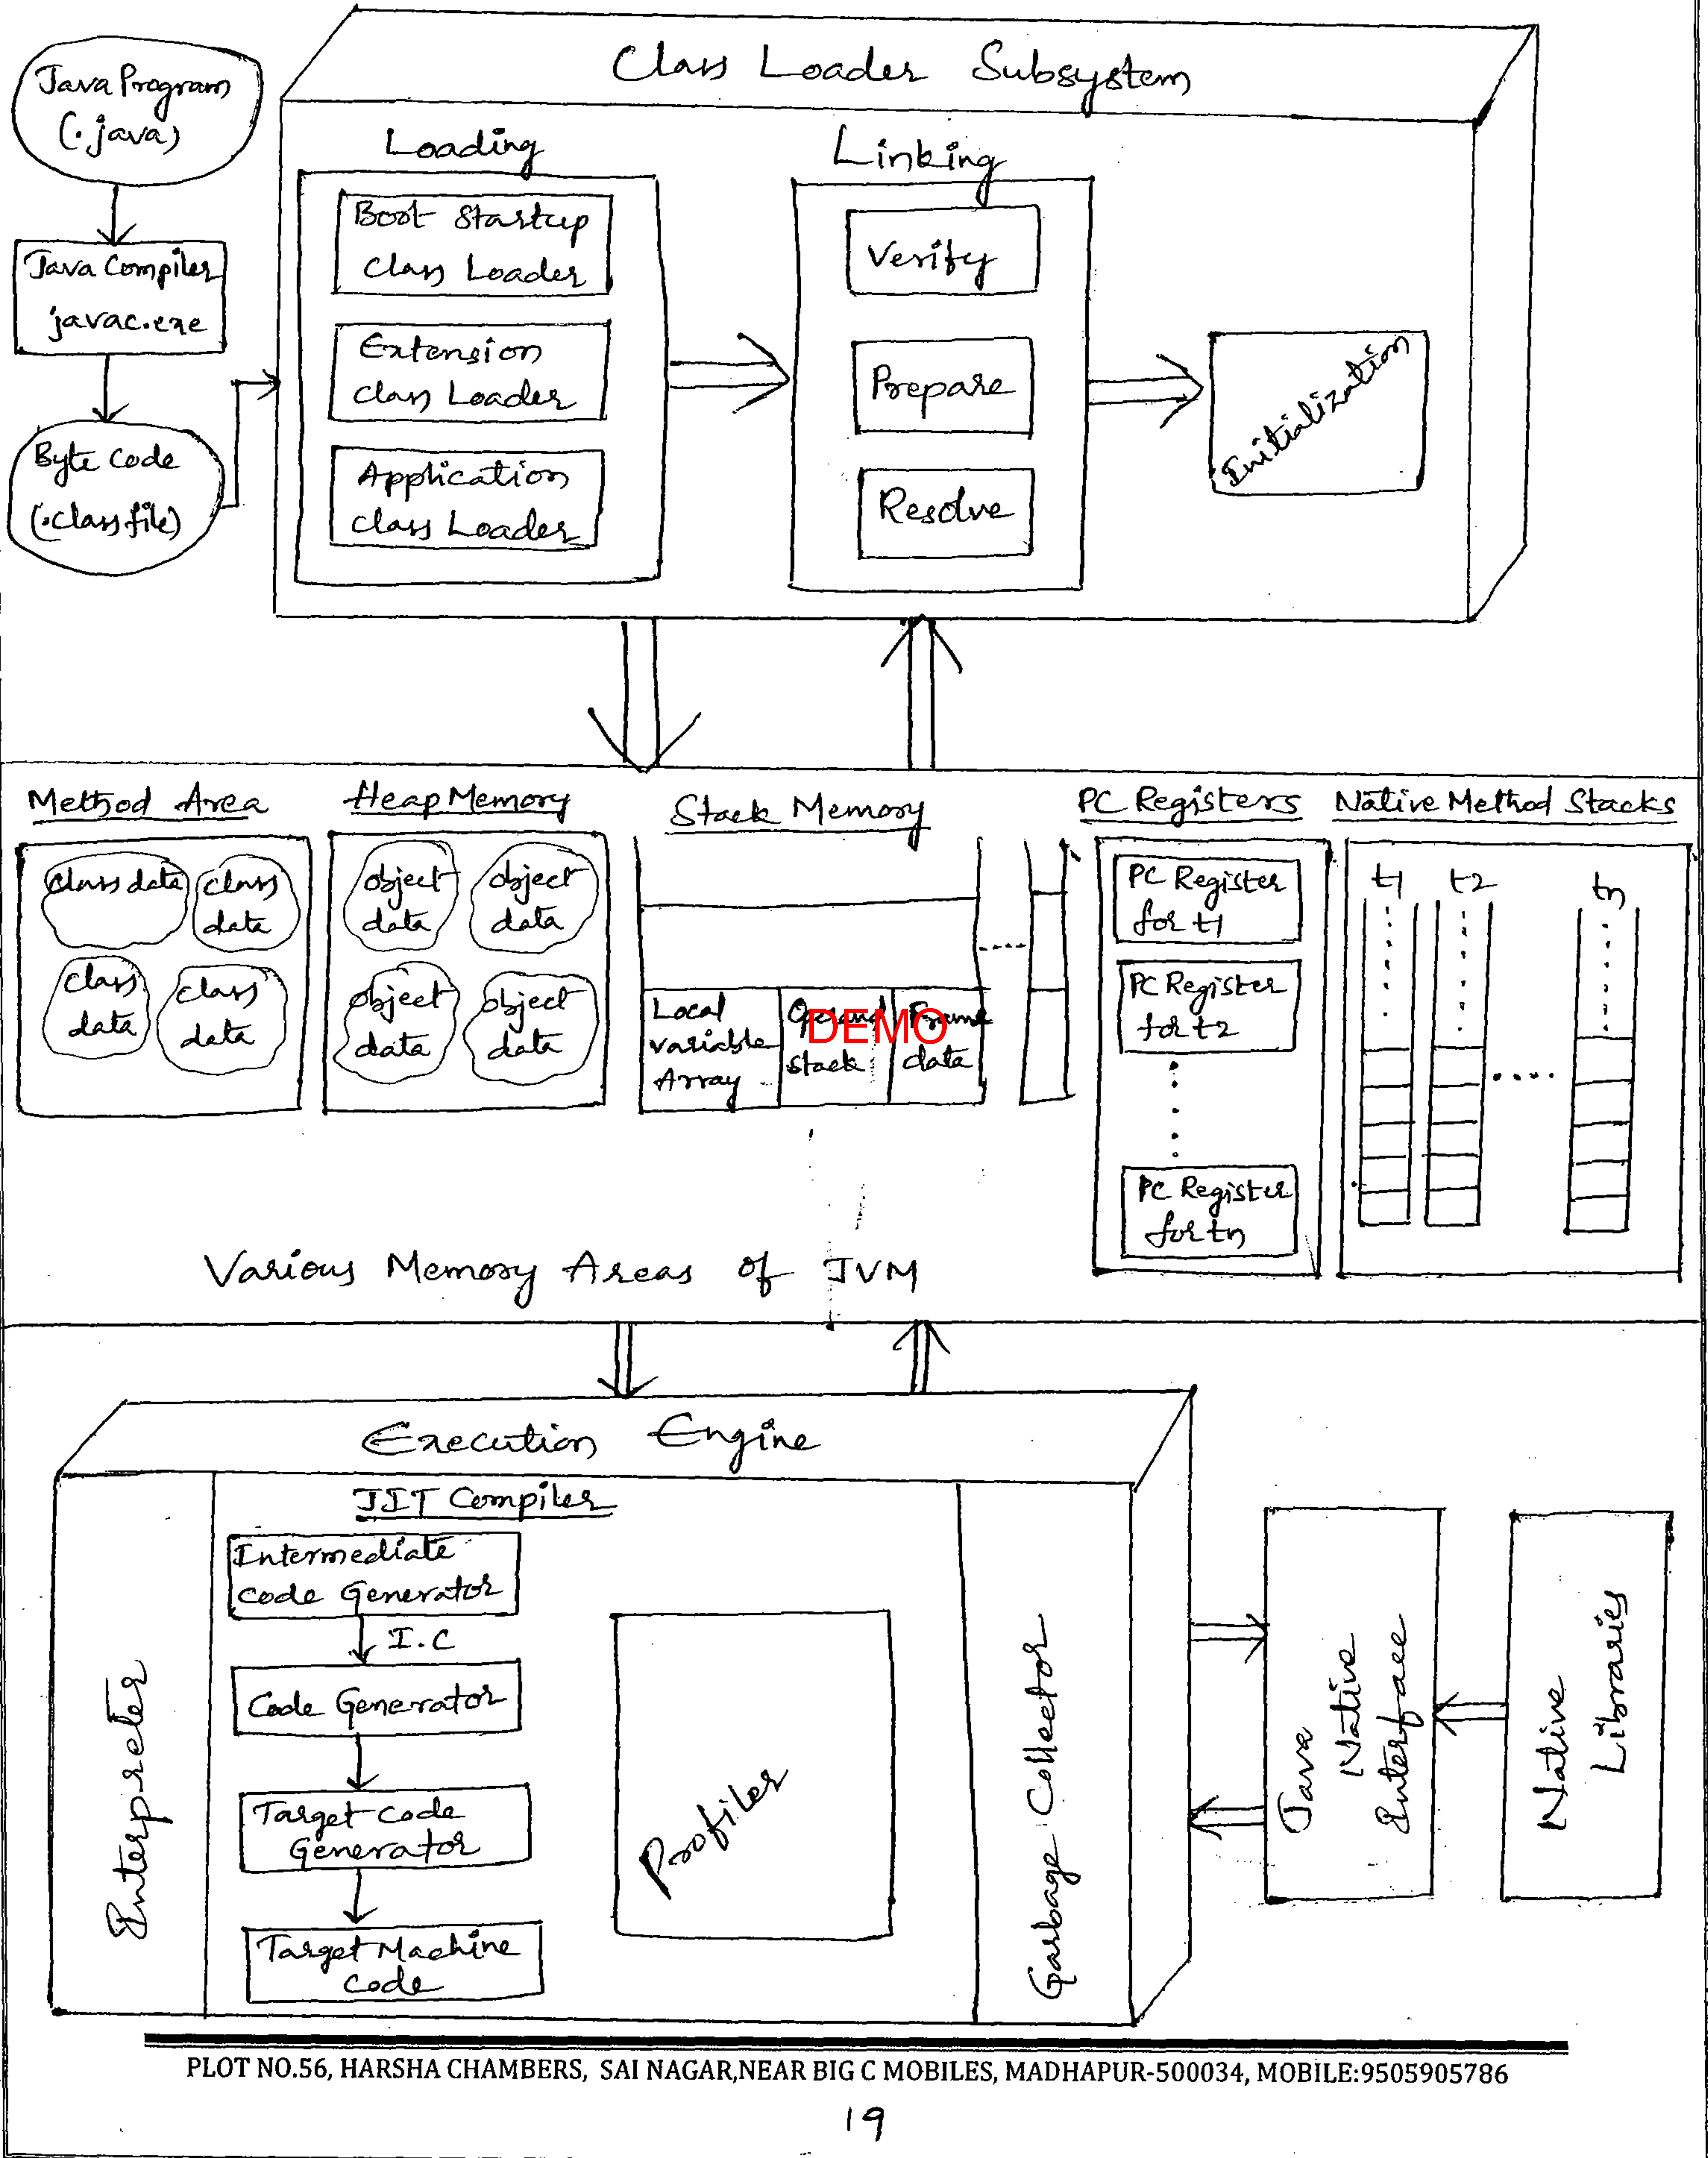 Class Loader Subsystem
Java Program
(.java)
Java Compiler
javac.exe
Byte Code
(.class file)
Loading
Boot Startup
Class Loader
Extension
Class Loader
Application
Class Loader
Linking
Verify
Prepare
Resolve
Initialization
Method Area
class data
class
data
class
data
class
data
Heap Memory
object
data
object
data
object
data
object
data
Stack Memory
Local
variable
Array
Operand
stack
Frame
data
DEMO
PC Registers
PC Register
for t1
PC Register
for t2
PC Register
for tn
Native Method Stacks
t1
t2
tn
Various Memory Areas of JVM
Execution Engine
Enterpreter
JIT Compiler
Intermediate
code Generator
I.C
Code Generator
Target code
Generator
Target Machine
Code
Profiler
Garbage Collector
Java
Native
Enterface
Native
Libraries
PLOT NO.56, HARSHA CHAMBERS, SAI NAGAR,NEAR BIG C MOBILES, MADHAPUR-500034, MOBILE:9505905786
19